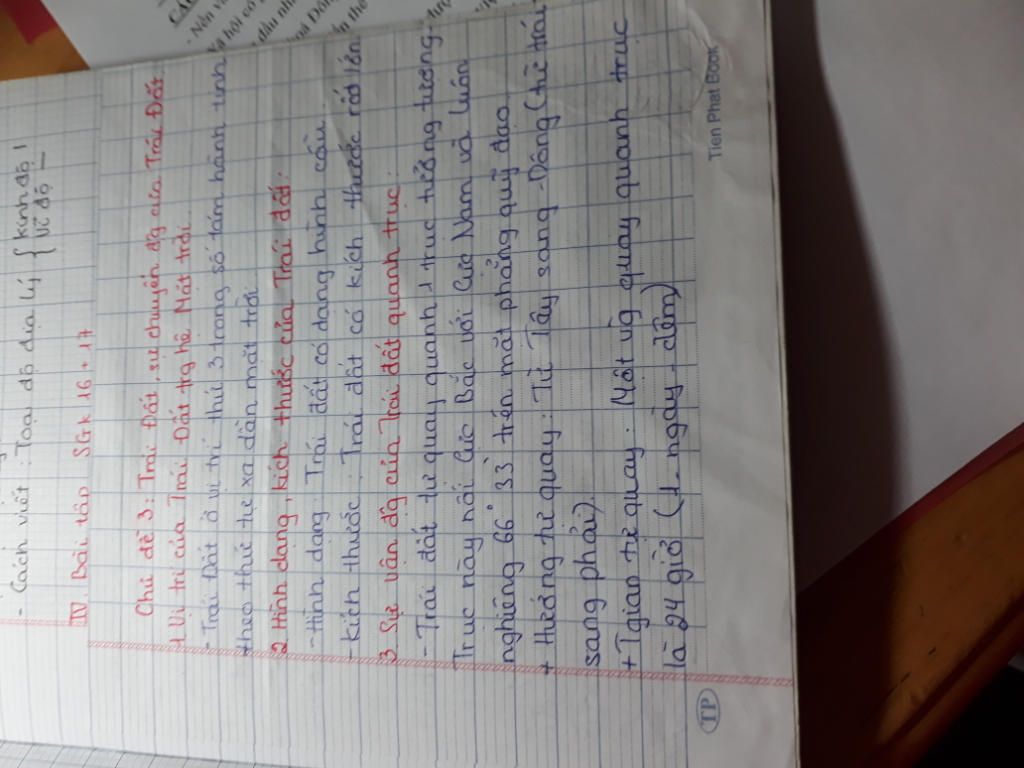 - Cách viết : Toạ độ địa lý { kinh độ
vĩ độ
IV. Bài tập SGK 16 + 17
Chủ đề 3: Trái Đất, sự chuyển độg của Trái Đất
1. Vị trí của Trái Đất trg hệ Mặt trời.
- Trái Đất ở vị trí thứ 3 trong số tám hành tinh
theo thứ tự xa dần mặt trời.
2. Hình dạng, kích thước của Trái đất:
- Hình dạng : Trái đất có dạng hình cầu.
- Kích thước : Trái đất có kích thước rất lớn
3. Sự vận độg của Trái đất quanh trục:
- Trái đất tự quay quanh 1 trục tưởng tượng.
Trục này nối Cực Bắc với Cực Nam và luôn
nghiêng 66° 33' trên mặt phẳng quỹ đạo
+ Hướng tự quay : Từ Tây sang - Đông (từ trái
sang phải).
+ Tgian tự quay : Một vòg quay quanh trục
là 24 giờ ( 1 ngày - đêm)
TP
Tien Phat Book
CÂU
- Nền vă
xã hội có